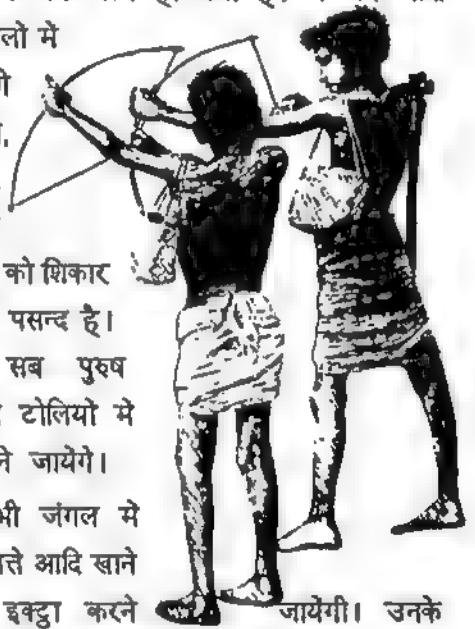 लों में
को शिकार
पसन्द है।
सब पुरुष
टोलियों में
ने जायेंगे।
भी जंगल में
त्ते आदि खाने
इक्ट्ठा करने जायेंगी। उनके